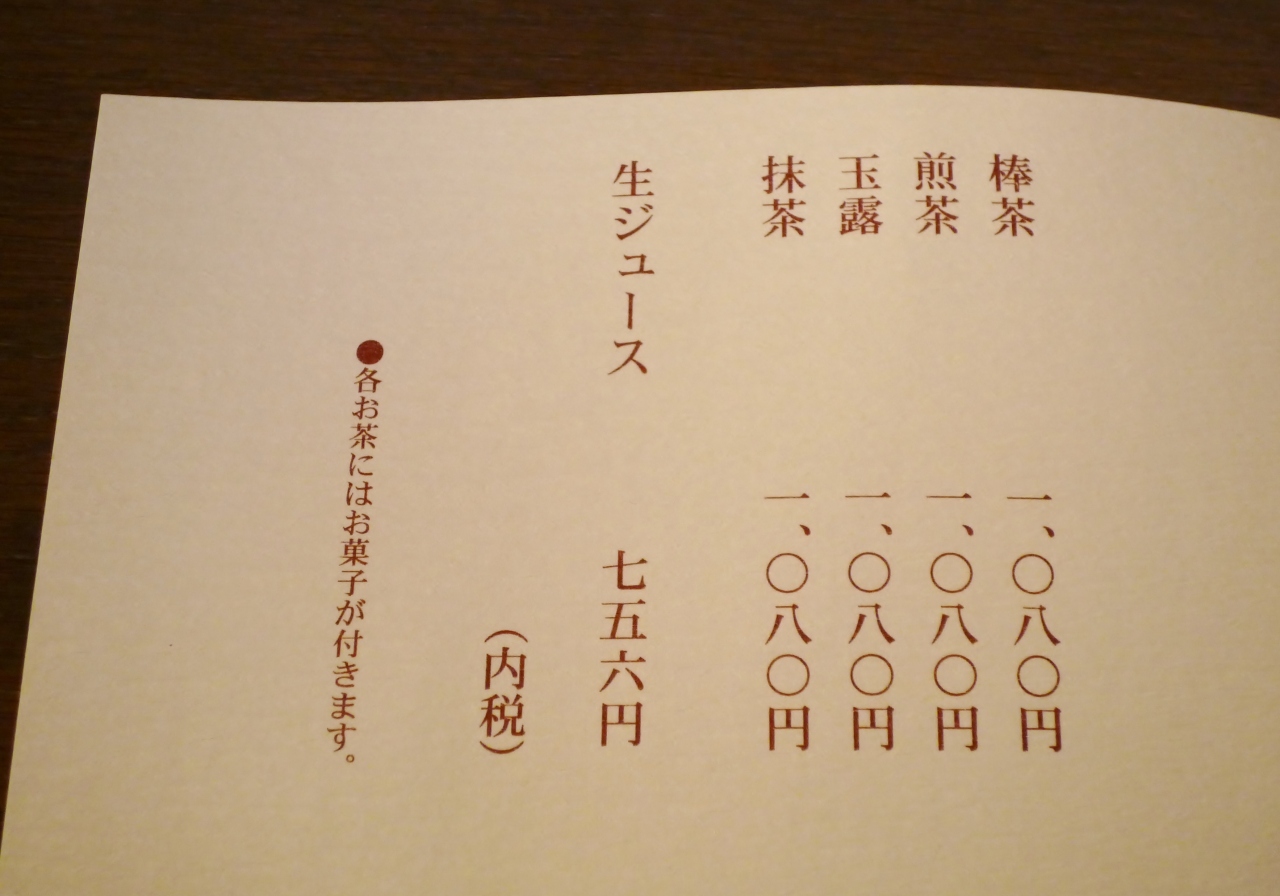 棒茶 一、〇八〇円
煎茶 一、〇八〇円
玉露 一、〇八〇円
抹茶 一、〇八〇円
生ジュース 七五六円
（内税）
●各お茶にはお菓子が付きます。